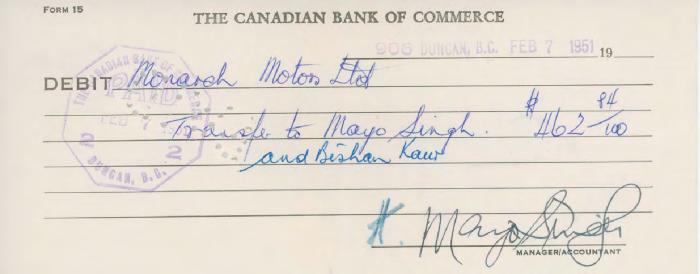 FORM 15
THE CANADIAN BANK OF COMMERCE
906 DUNCAN, B.C. FEB 7 1951 19
DEBIT Monarch Motors Ltd
THE CANADIAN BANK OF COMMERCE
PAID
FEB 7
2 2
DUNCAN, B.C.
Transfer to Mayo Singh. $462 84/100
and Bishan Kaur
Mayo Singh
MANAGER/ACCOUNTANT